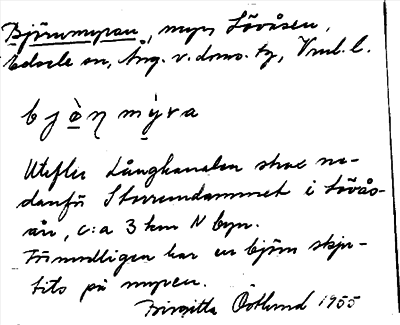 Björnmyran, myr, Lövåsen,
Edsele sn, Ång. v. doms. tg, Vnl. l.
b j ò̤ ɳ m ý̤ r a
Utefter Långkanalen strax ne-
danför Storrumdammet i Lövås-
ån, c:a 3 km N byn.
Förmodligen har en björn skju-
tits på myren.
Birgitta Östlund 1955